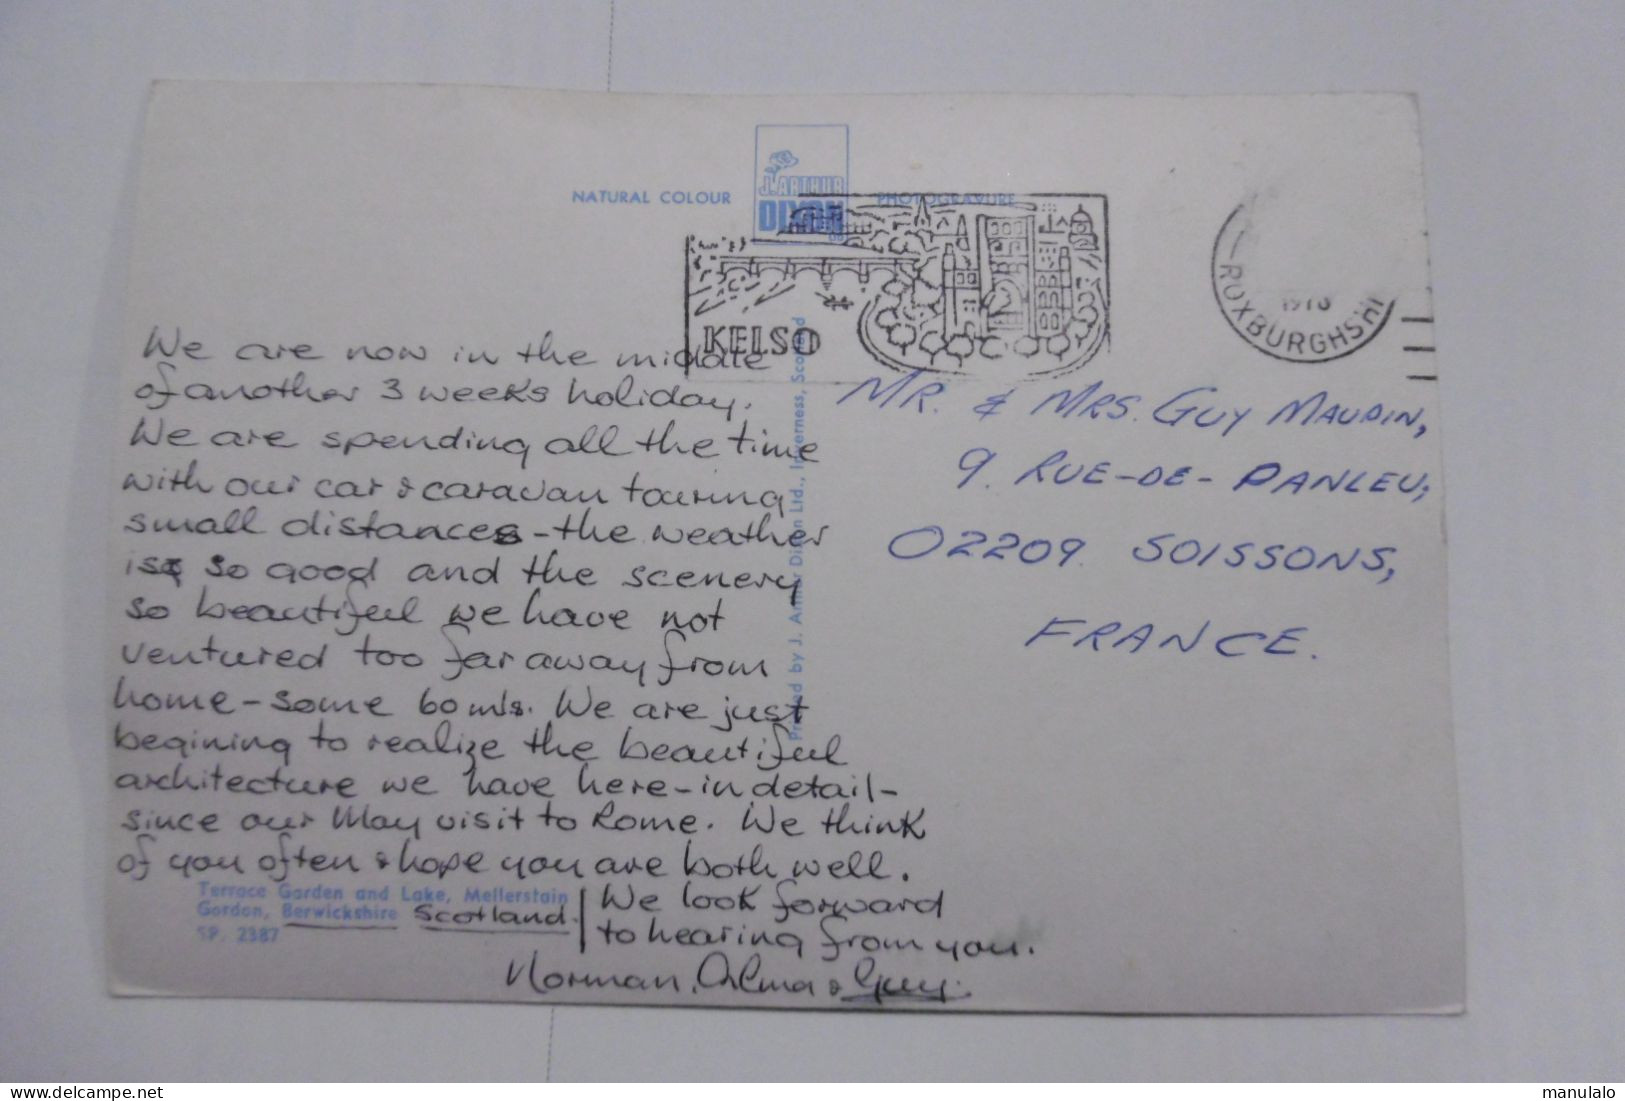 NATURAL COLOUR
J. ARTHUR
DIXON
PHOTOGRAVURE
KELSO
ROXBURGHSHI
We are now in the middle
of another 3 weeks holiday.
We are spending all the time
with our car & caravan touring
small distances - the weather
is so good and the scenery
so beautiful we have not
ventured too far away from
home - some 60 mls. We are just
begining to realize the beautiful
architecture we have here - in detail -
since our May visit to Rome. We think
of you often & hope you are both well.
We look forward
to hearing from you.
Norman, Alma & Guy.
Terrace Garden and Lake, Mellerstain
Gordon, Berwickshire Scotland.
SP. 2387
Printed by J. Arthur Dixon Ltd., Inverness, Scotland
MR. & MRS. GUY MAUDIN,
9. RUE-DE-PANLEU;
02209. SOISSONS,
FRANCE.
www.delcampe.net
manulalo